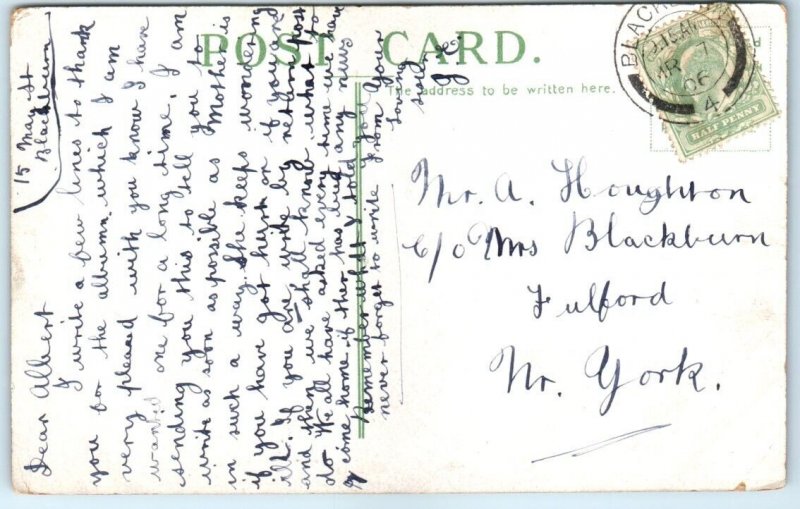 POST CARD.
The address to be written here.
BLACKB
9.15AM
MR 7
06
4
HALF PENNY
Mr. A. Houghton
c/o Mrs Blackburn
Fulford
Nr. York.
15 May St
Blackburn
Dear Albert
I write a few lines to thank
you for the album which I am
very pleased with you know I have
wanted one for a long time. I am
sending you this to tell you to
write as soon as possible as Mother is
in such a way. She keeps wondering
if you have got hurt or if you are
ill. If you are write by return post
and then we shall know what to
do We all have asked every time we have
come home if ther has bee any news
Remember what I told you
never forget to write From Your
loving